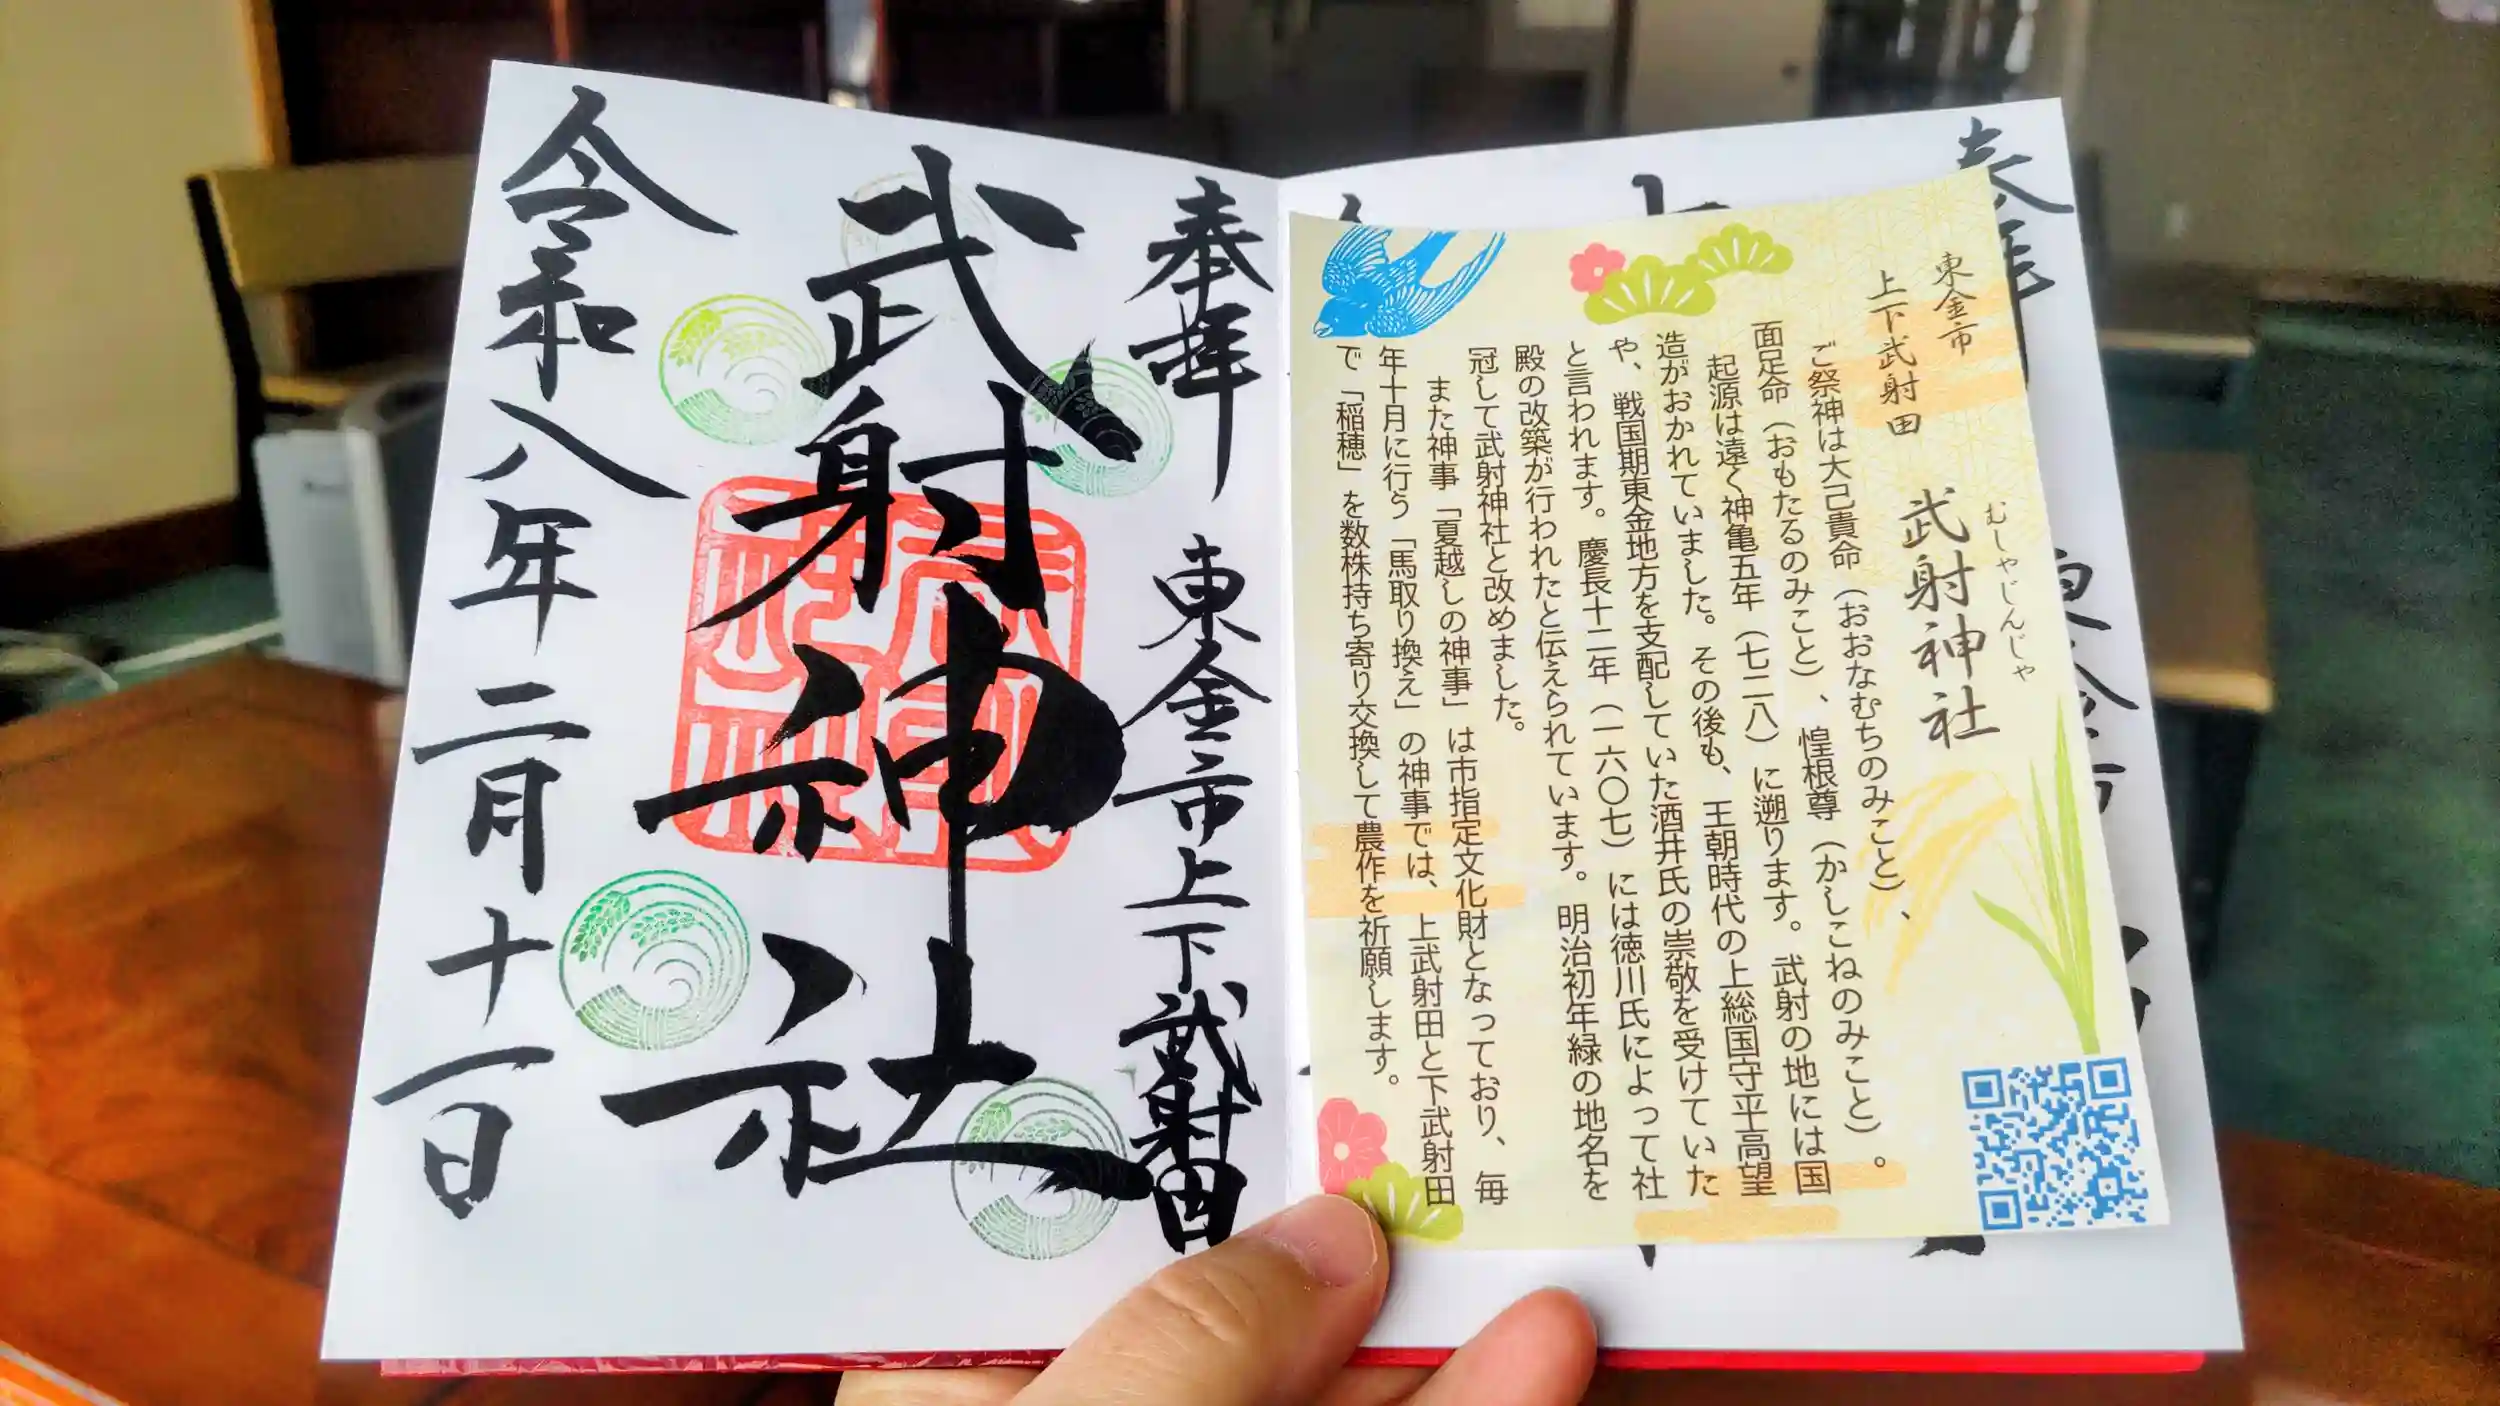 奉拝
東金市
上下武射田
武射神社
むしゃじんじゃ
ご祭神は大己貴命（おおなむちのみこと）、
惶根尊（かしこねのみこと）。
面足命（おもたるのみこと）、
起源は遠く神亀五年（七二八）に遡ります。武射の地には国
造がおかれていました。その後も、王朝時代の上総国守平高望
や、戦国期東金地方を支配していた酒井氏の崇敬を受けていた
と言われます。慶長十二年（一六〇七）には徳川氏によって社
殿の改築が行われたと伝えられています。明治初年緑の地名を
冠して武射神社と改めました。
また神事「夏越しの神事」は市指定文化財となっており、毎
年十月に行う「馬取り換え」の神事では、上武射田と下武射田
で「稲穂」を数株持ち寄り交換して農作を祈願します。
奉拝 東金市上下武射田
武射神社
令和八年二月十一日